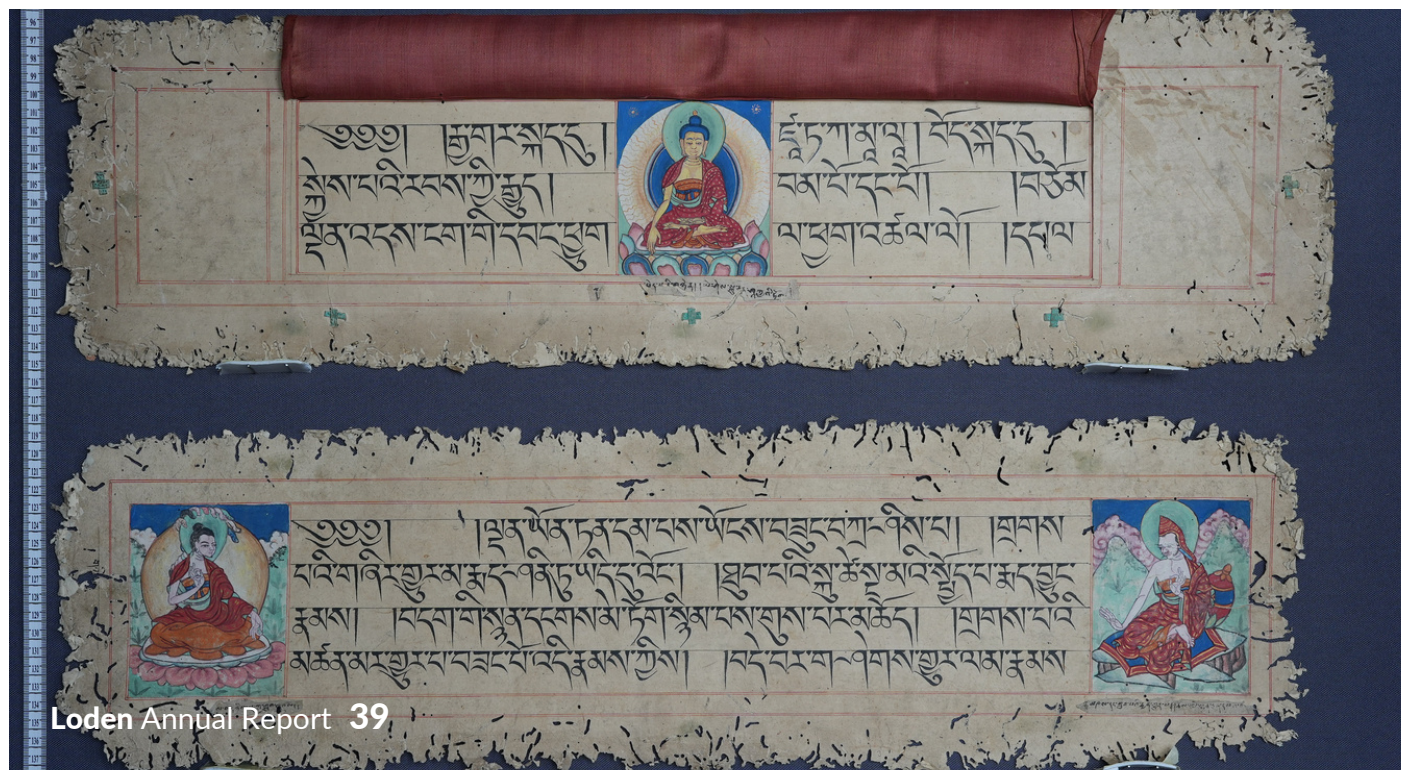 ༄༅༅། །རྒྱ་གར་སྐད་དུ། ཛཱ་ཏ་ཀ་མཱ་ལཱ། བོད་སྐད་དུ།
སྐྱེས་པའི་རབས་ཀྱི་རྒྱུད། བམ་པོ་དང་པོ། །བཅོམ་
ལྡན་འདས་ངག་གི་དབང་ཕྱུག་ལ་ཕྱག་འཚལ་ལོ། །དཔལ་
༄༅༅། །ལྡན་ཡོན་ཏན་དམ་པས་ཡོངས་བཟུང་བཀྲ་ཤིས་པ། །གྲགས་
པའི་གཞིར་གྱུར་མ་རྨད་ཤིན་ཏུ་ཡིད་དུ་འོང་། །ཐུབ་པའི་སྐུ་ཚེ་སྔ་མའི་སྤྱོད་པ་རྨད་བྱུང་
རྣམས། །བདག་གི་སྙན་དངགས་མེ་ཏོག་སྙིམ་པས་གུས་པར་མཆོད། །གྲགས་པའི་
མཚན་མར་གྱུར་པ་བཟང་པོ་འདི་རྣམས་ཀྱིས། །བདེ་བར་གཤེགས་གྱུར་ལམ་རྣམས་
Loden Annual Report 39